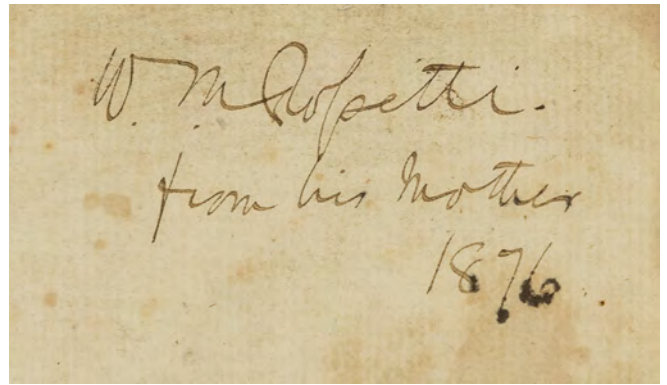 W. M Rossetti.
from his Mother
1876.